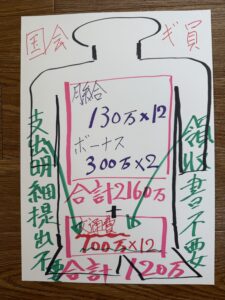 国会ギ員
月給
130万×12
ボーナス
300万×2
合計2160万
+
通費
100万×12
合計
支出明細提出不要
領収書不要